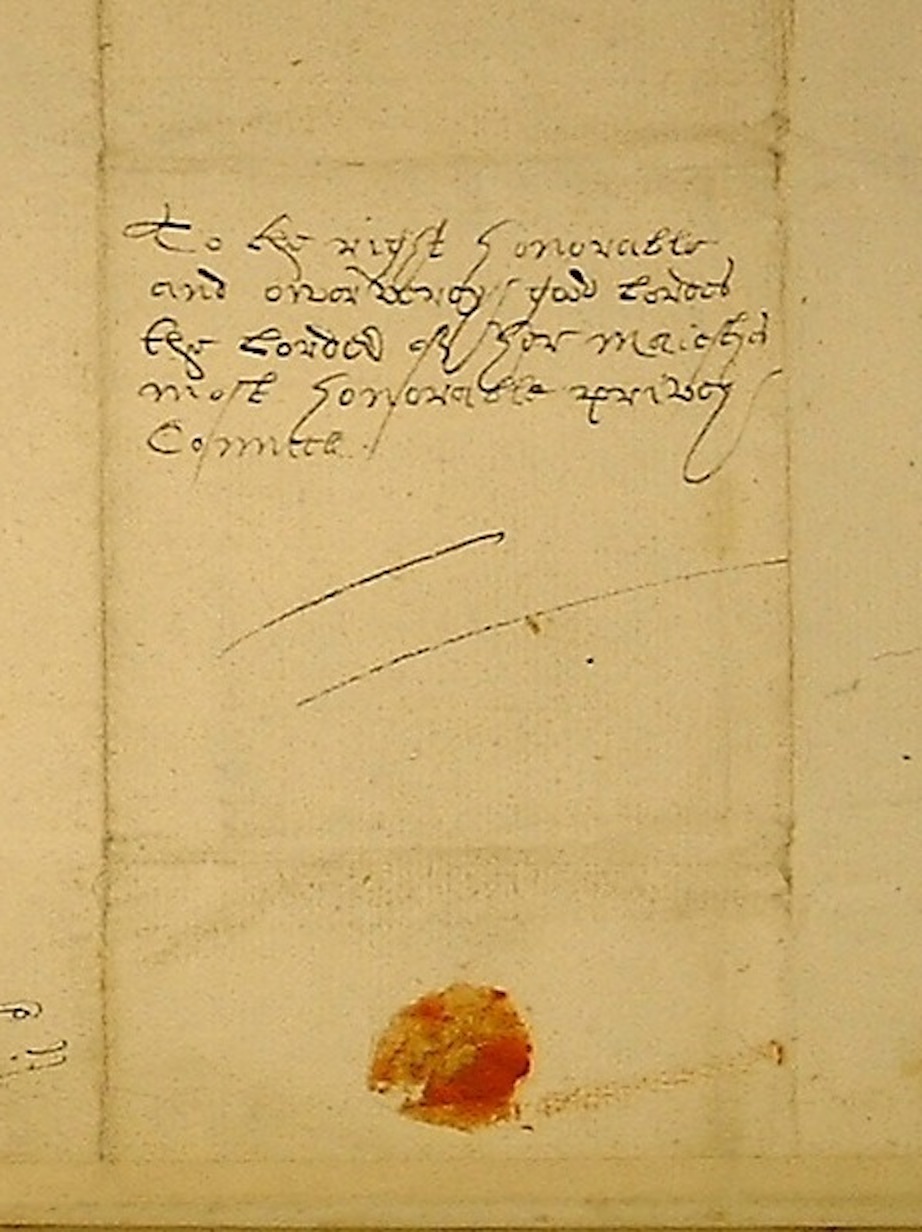 To the right honorable
and our verey good Lordes
the Lordes of her Maiesties
most honorable privey